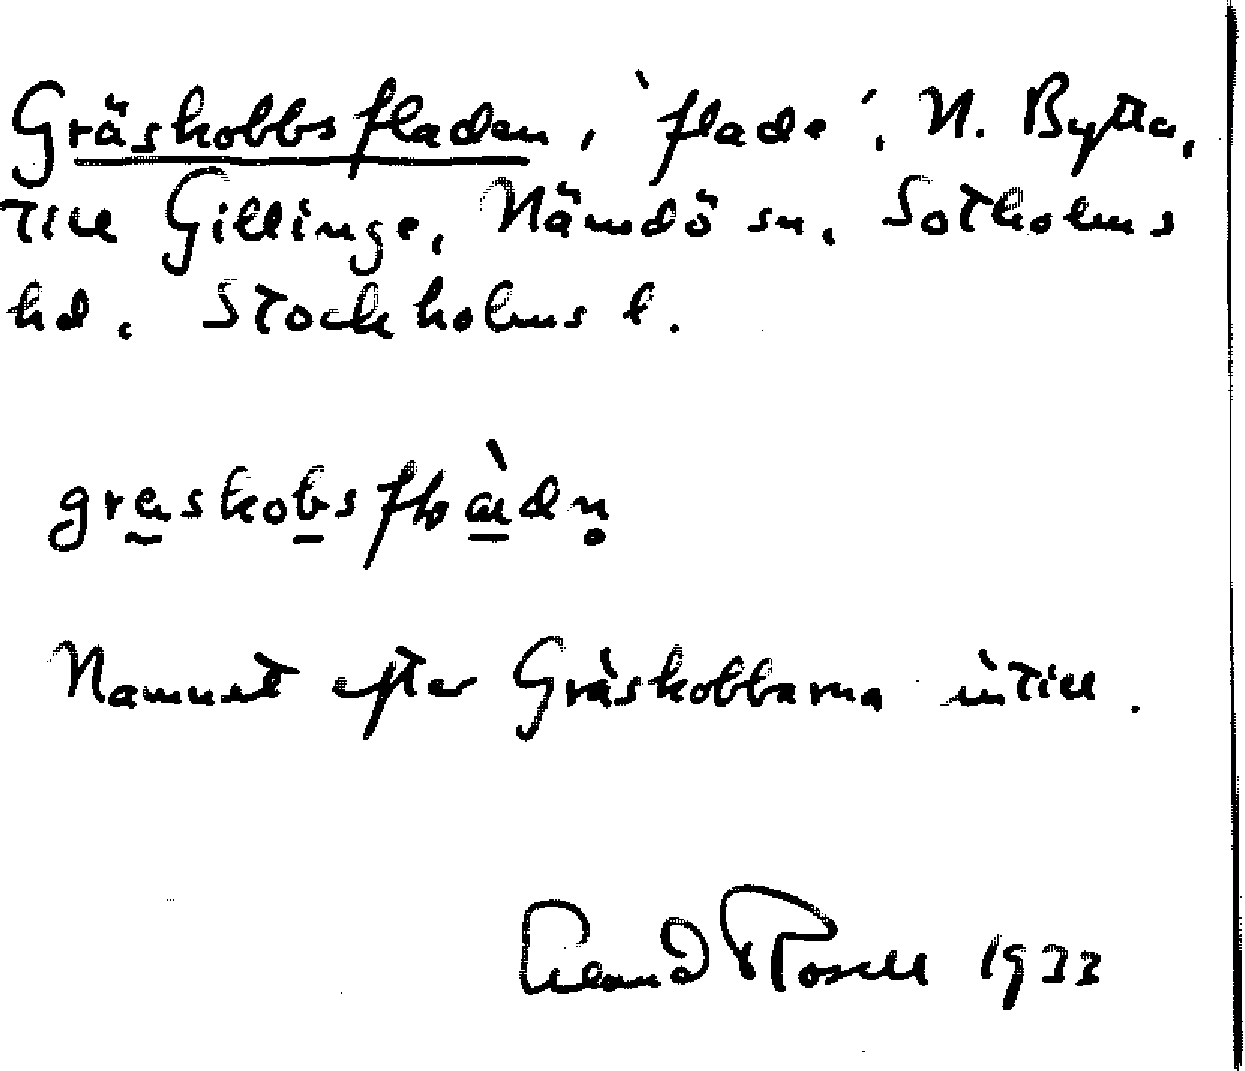 Gräskobbsfladen, 'flade', N. Bytta,
till Gillinge, Nämdö sn, Sotholms
hd, Stockholms l.
Namnet efter Gräskobbarna intill.
Erland Rosell 1933